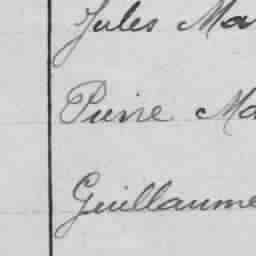 Jules Ma
Pierre Ma
Guillaume